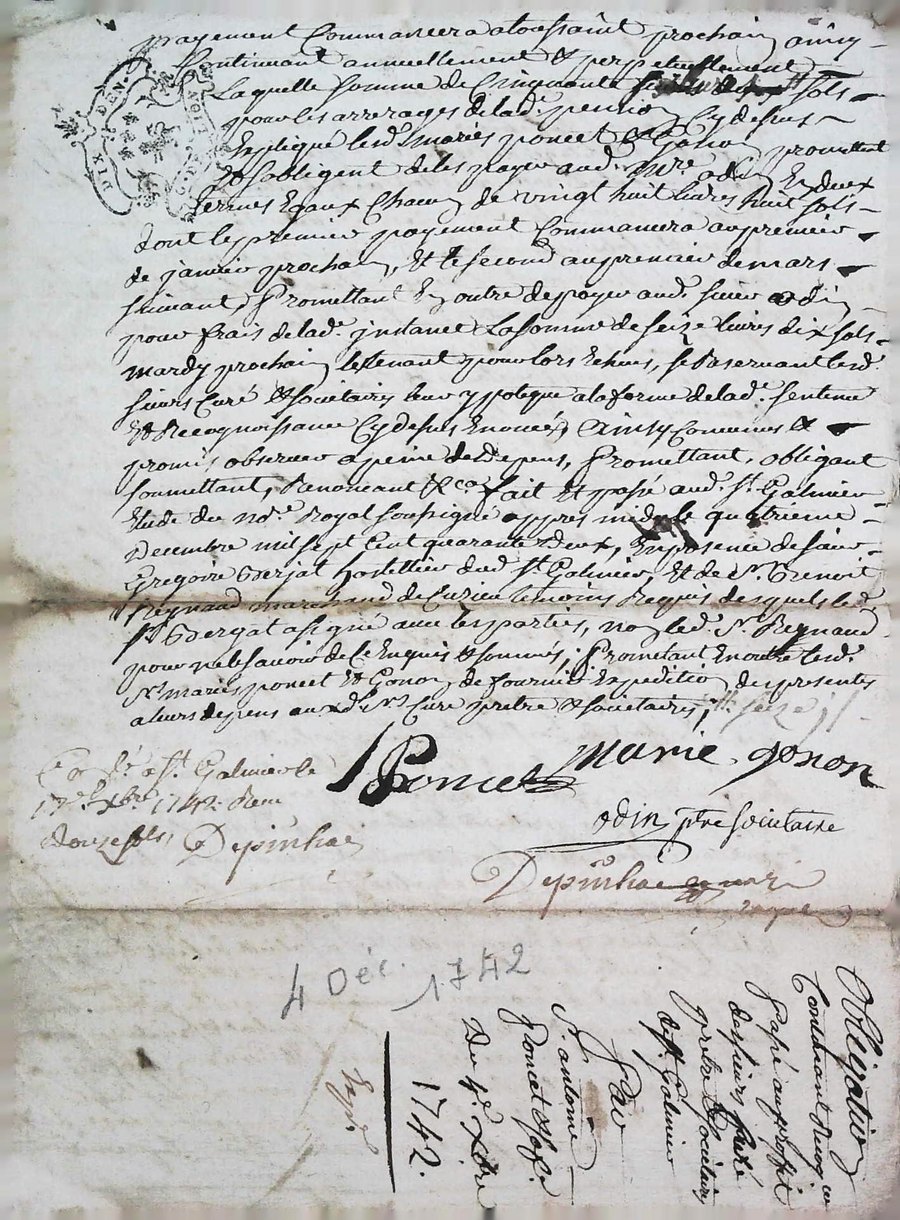 payement Commancera a toussaint prochain, ainsy
Continuant annuellement & perpetuellement
Laquelle somme de Cinquante sols
pour les arrerages de lad. pension Cy dessus
Expliqué lesd. mariés poncet Gonon promettent
Et s'obligent de les payer aud. odin En deux
termes Egaux Chacun de vingt huit livres huit sols
dont le premier payement Commancera au premier
de janvier prochain, Et le second au premier de mars
suivant, Promettant En outre de payer aud. sieur odin
pour frais de lad. instance La somme de seize livres dix sols
mardy prochain, lesd.
sieurs Curé & societaires leur ypoteque a la forme de lad. sentence
Et Recognoissance Cy dessus Enoncés, Ainsy Convenues &
promis observer a peine de depens, Promettant, obligeant
soumettant, Renonceant &ca. fait Et passé aud. St. Galmier
Etude du No.re Royal soussigné appres midy le quatrieme
Decembre mil sept Cent quarante deux, En presence de sieur
Gregoire Verjat hostellier dud. St. Galmier, Et de Sr. Benoit
Reynaud marchand de Cuzieu temoins Requis desquels led.
Sr. Vergat a signé avec les parties, non led. Sr. Reynaud
pour ne le scavoir de ce Enquis & sommés; Promettant En outre lesd.
mariés poncet Et Gonon, de fournir Expedition des presentes
a leurs depens auxd. Srs. Curé pretre & societaires;
Poncet marie gonon
odin ptre societaire
Co.lé a St. Galmier le
xbre 1742. Reçu
douze sols,
4 Déc. 1742
Obligation
Contenant
Passé au proffit
des sieurs Curé
pretre & societaires
de St. Galmier
Par
Sr. antoine
Poncet & sa fe.
Du 4e. Xbre
1742.